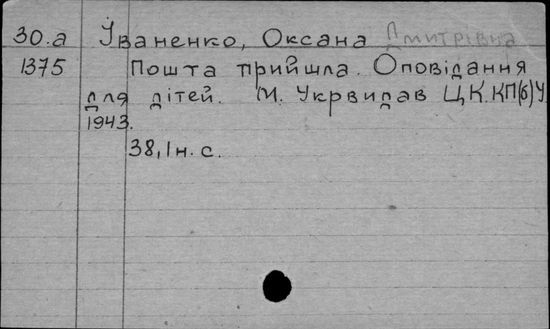 30.а Іваненко, Оксана Дмитрівна
1375 Пошта прийшла. Оповідання
для дітей. М. Укрвидав ЦК.КП(б)У
1943.
38,1н. с.